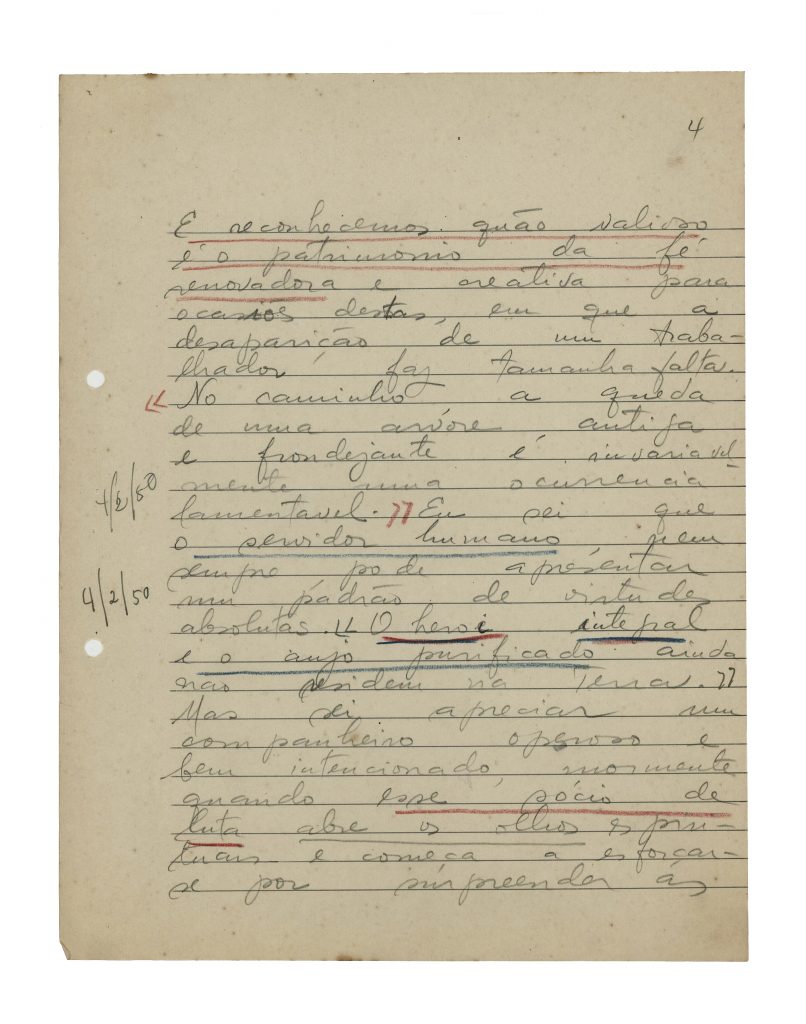 4
E reconhecemos quão valioso
é o patrimonio da fé
renovadora e creativa para
ocasiões destas, em que a
desaparição de um traba-
lhador faz tamanha falta.
« No caminho a queda
de uma arvore antiga
e frondejante é invariavel-
mente uma ocurrencia
lamentavel. » Eu sei que
o servidor humano nem
sempre pode apresentar
um padrão de virtudes
absolutas. « O heroi integral
e o anjo purificado ainda
não residem na Terra. »
Mas sei apreciar um
companheiro operoso e
bem intencionado, mormente
quando esse sócio de
luta abre os olhos espiri-
tuais e começa a esforçar-
se por surpreender ás
4/2/50
4/2/50